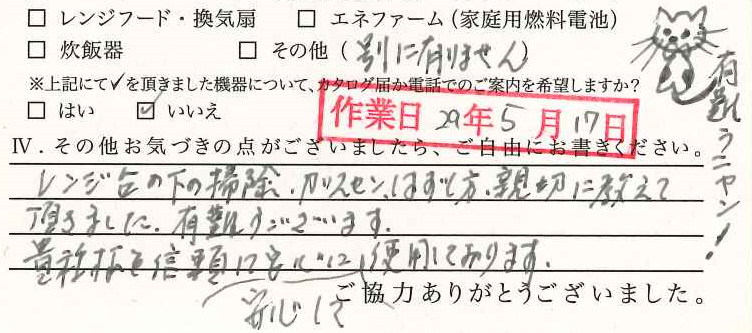 □ レンジフード・換気扇 □ エネファーム(家庭用燃料電池)
□ 炊飯器 □ その他(別に有りません)
※上記にて✓を頂きました機器について、カタログ届か電話でのご案内を希望しますか?
□ はい ☑ いいえ
作業日 29年5月17日
Ⅳ.その他お気づきの点がございましたら、ご自由にお書きください。
レンジ台の下の掃除、ガスセン、はずし方、親切に教えて
頂きました。有難うございます。
信頼して
使用しております。
安心して
ご協力ありがとうございました。
有難うニャン!